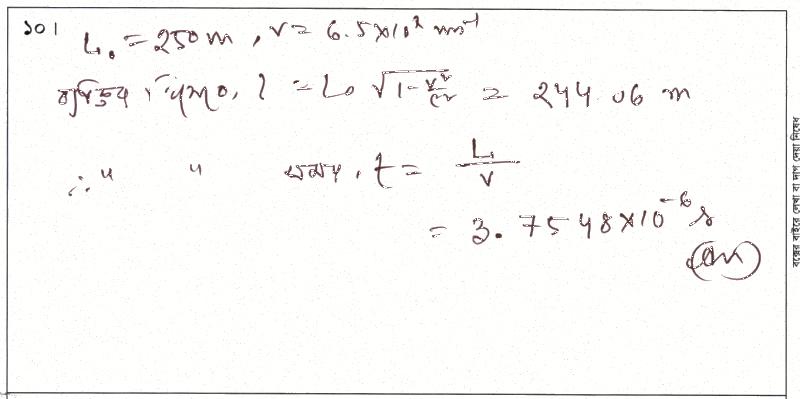 ১০। L₀ = 250 m, v = 6.5×10⁷ ms⁻¹
L = L₀ √1 - v²/c² = 244.06 m
∴ " " সময়, t = L/v
= 3.7548×10⁻⁶ s
(Ans)
বক্সের বাইরে লেখা বা দাগ দেয়া নিষেধ